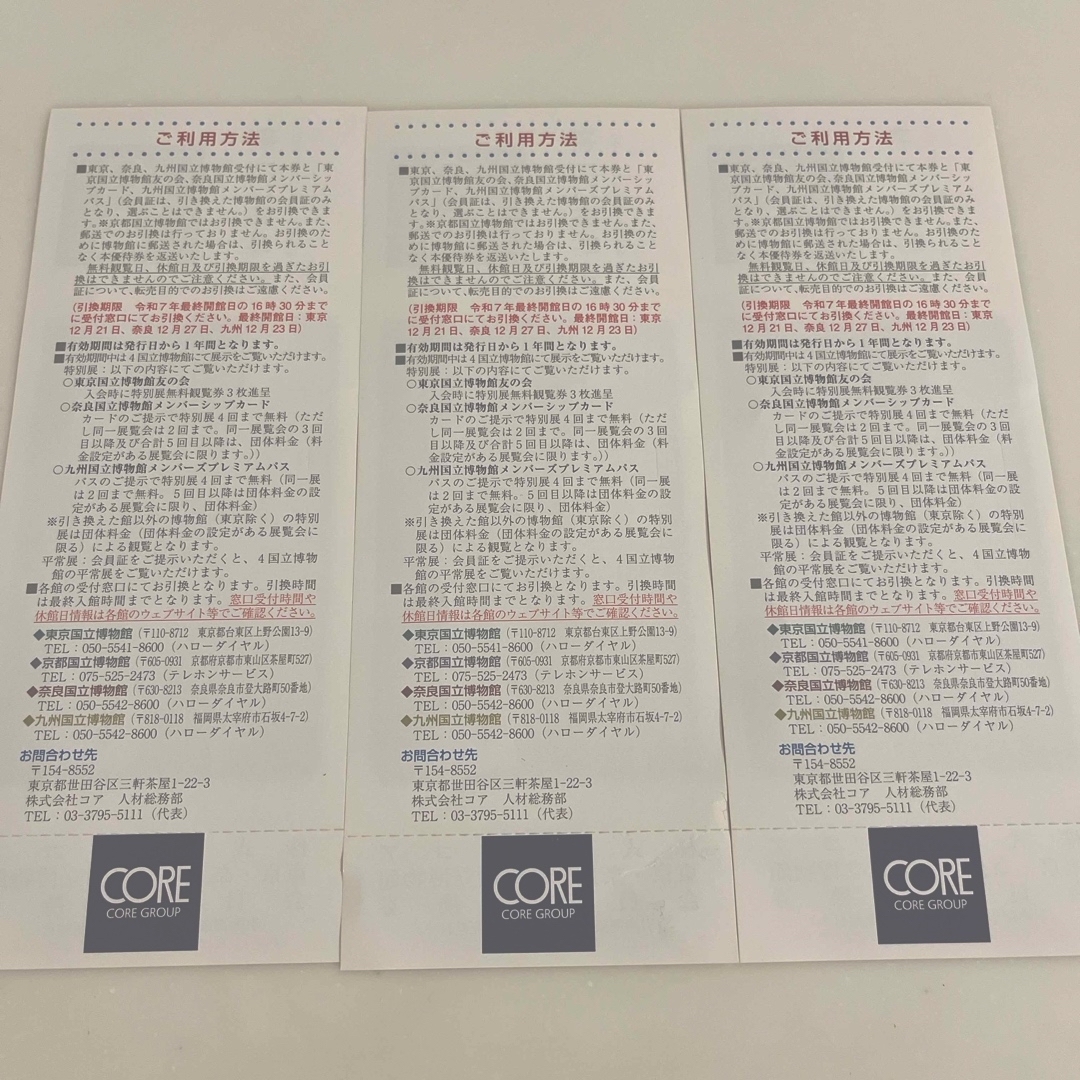 ご利用方法
■東京、奈良、九州国立博物館受付にて本券と「東
京国立博物館友の会、奈良国立博物館メンバーシッ
プカード、九州国立博物館メンバーズプレミアム
パス」(会員証は、引き換えた博物館の会員証のみ
となり、選ぶことはできません。)をお引換できま
す。※京都国立博物館ではお引換できません。また、
郵送でのお引換は行っておりません。お引換のた
めに博物館に郵送された場合は、引換られること
なく本優待券を返送いたします。
無料観覧日、休館日及び引換期限を過ぎたお引
換はできませんのでご注意ください。また、会員
証について、転売目的でのお引換はご遠慮ください。
(引換期限 令和7年最終開館日の16時30分まで
に受付窓口にてお引換ください。最終開館日:東京
12月21日、奈良12月27日、九州12月23日)
■有効期間は発行日から1年間となります。
■有効期間中は4国立博物館にて展示をご覧いただけます。
特別展:以下の内容にてご覧いただけます。
○東京国立博物館友の会
入会時に特別展無料観覧券3枚進呈
○奈良国立博物館メンバーシップカード
カードのご提示で特別展4回まで無料(ただ
し同一展覧会は2回まで。同一展覧会の3回
目以降及び合計5回目以降は、団体料金(料
金設定がある展覧会に限ります。))
○九州国立博物館メンバーズプレミアムパス
パスのご提示で特別展4回まで無料(同一展
は2回まで無料。5回目以降は団体料金の設
定がある展覧会に限り、団体料金)
※引き換えた館以外の博物館(東京除く)の特別
展は団体料金(団体料金の設定がある展覧会に
限る)による観覧となります。
平常展:会員証をご提示いただくと、4国立博物
館の平常展をご覧いただけます。
■各館の受付窓口にてお引換となります。引換時間
は最終入館時間までとなります。窓口受付時間や
休館日情報は各館のウェブサイト等でご確認ください。
◆東京国立博物館(〒110-8712 東京都台東区上野公園13-9)
TEL:050-5541-8600(ハローダイヤル)
◆京都国立博物館(〒605-0931 京都府京都市東山区茶屋町527)
TEL:075-525-2473(テレホンサービス)
◆奈良国立博物館(〒630-8213 奈良県奈良市登大路町50番地)
TEL:050-5542-8600(ハローダイヤル)
◆九州国立博物館(〒818-0118 福岡県太宰府市石坂4-7-2)
TEL:050-5542-8600(ハローダイヤル)
お問合わせ先
〒154-8552
東京都世田谷区三軒茶屋1-22-3
株式会社コア 人材総務部
TEL:03-3795-5111(代表)
CORE
CORE GROUP
ご利用方法
■東京、奈良、九州国立博物館受付にて本券と「東
京国立博物館友の会、奈良国立博物館メンバーシッ
プカード、九州国立博物館メンバーズプレミアム
パス」(会員証は、引き換えた博物館の会員証のみ
となり、選ぶことはできません。)をお引換できま
す。※京都国立博物館ではお引換できません。また、
郵送でのお引換は行っておりません。お引換のた
めに博物館に郵送された場合は、引換られること
なく本優待券を返送いたします。
無料観覧日、休館日及び引換期限を過ぎたお引
換はできませんのでご注意ください。また、会員
証について、転売目的でのお引換はご遠慮ください。
(引換期限 令和7年最終開館日の16時30分まで
に受付窓口にてお引換ください。最終開館日:東京
12月21日、奈良12月27日、九州12月23日)
■有効期間は発行日から1年間となります。
■有効期間中は4国立博物館にて展示をご覧いただけます。
特別展:以下の内容にてご覧いただけます。
○東京国立博物館友の会
入会時に特別展無料観覧券3枚進呈
○奈良国立博物館メンバーシップカード
カードのご提示で特別展4回まで無料(ただ
し同一展覧会は2回まで。同一展覧会の3回
目以降及び合計5回目以降は、団体料金(料
金設定がある展覧会に限ります。))
○九州国立博物館メンバーズプレミアムパス
パスのご提示で特別展4回まで無料(同一展
は2回まで無料。5回目以降は団体料金の設
定がある展覧会に限り、団体料金)
※引き換えた館以外の博物館(東京除く)の特別
展は団体料金(団体料金の設定がある展覧会に
限る)による観覧となります。
平常展:会員証をご提示いただくと、4国立博物
館の平常展をご覧いただけます。
■各館の受付窓口にてお引換となります。引換時間
は最終入館時間までとなります。窓口受付時間や
休館日情報は各館のウェブサイト等でご確認ください。
◆東京国立博物館(〒110-8712 東京都台東区上野公園13-9)
TEL:050-5541-8600(ハローダイヤル)
◆京都国立博物館(〒605-0931 京都府京都市東山区茶屋町527)
TEL:075-525-2473(テレホンサービス)
◆奈良国立博物館(〒630-8213 奈良県奈良市登大路町50番地)
TEL:050-5542-8600(ハローダイヤル)
◆九州国立博物館(〒818-0118 福岡県太宰府市石坂4-7-2)
TEL:050-5542-8600(ハローダイヤル)
お問合わせ先
〒154-8552
東京都世田谷区三軒茶屋1-22-3
株式会社コア 人材総務部
TEL:03-3795-5111(代表)
CORE
CORE GROUP
ご利用方法
■東京、奈良、九州国立博物館受付にて本券と「東
京国立博物館友の会、奈良国立博物館メンバーシッ
プカード、九州国立博物館メンバーズプレミアム
パス」(会員証は、引き換えた博物館の会員証のみ
となり、選ぶことはできません。)をお引換できま
す。※京都国立博物館ではお引換できません。また、
郵送でのお引換は行っておりません。お引換のた
めに博物館に郵送された場合は、引換られること
なく本優待券を返送いたします。
無料観覧日、休館日及び引換期限を過ぎたお引
換はできませんのでご注意ください。また、会員
証について、転売目的でのお引換はご遠慮ください。
(引換期限 令和7年最終開館日の16時30分まで
に受付窓口にてお引換ください。最終開館日:東京
12月21日、奈良12月27日、九州12月23日)
■有効期間は発行日から1年間となります。
■有効期間中は4国立博物館にて展示をご覧いただけます。
特別展:以下の内容にてご覧いただけます。
○東京国立博物館友の会
入会時に特別展無料観覧券3枚進呈
○奈良国立博物館メンバーシップカード
カードのご提示で特別展4回まで無料(ただ
し同一展覧会は2回まで。同一展覧会の3回
目以降及び合計5回目以降は、団体料金(料
金設定がある展覧会に限ります。))
○九州国立博物館メンバーズプレミアムパス
パスのご提示で特別展4回まで無料(同一展
は2回まで無料。5回目以降は団体料金の設
定がある展覧会に限り、団体料金)
※引き換えた館以外の博物館(東京除く)の特別
展は団体料金(団体料金の設定がある展覧会に
限る)による観覧となります。
平常展:会員証をご提示いただくと、4国立博物
館の平常展をご覧いただけます。
■各館の受付窓口にてお引換となります。引換時間
は最終入館時間までとなります。窓口受付時間や
休館日情報は各館のウェブサイト等でご確認ください。
◆東京国立博物館(〒110-8712 東京都台東区上野公園13-9)
TEL:050-5541-8600(ハローダイヤル)
◆京都国立博物館(〒605-0931 京都府京都市東山区茶屋町527)
TEL:075-525-2473(テレホンサービス)
◆奈良国立博物館(〒630-8213 奈良県奈良市登大路町50番地)
TEL:050-5542-8600(ハローダイヤル)
◆九州国立博物館(〒818-0118 福岡県太宰府市石坂4-7-2)
TEL:050-5542-8600(ハローダイヤル)
お問合わせ先
〒154-8552
東京都世田谷区三軒茶屋1-22-3
株式会社コア 人材総務部
TEL:03-3795-5111(代表)
CORE
CORE GROUP